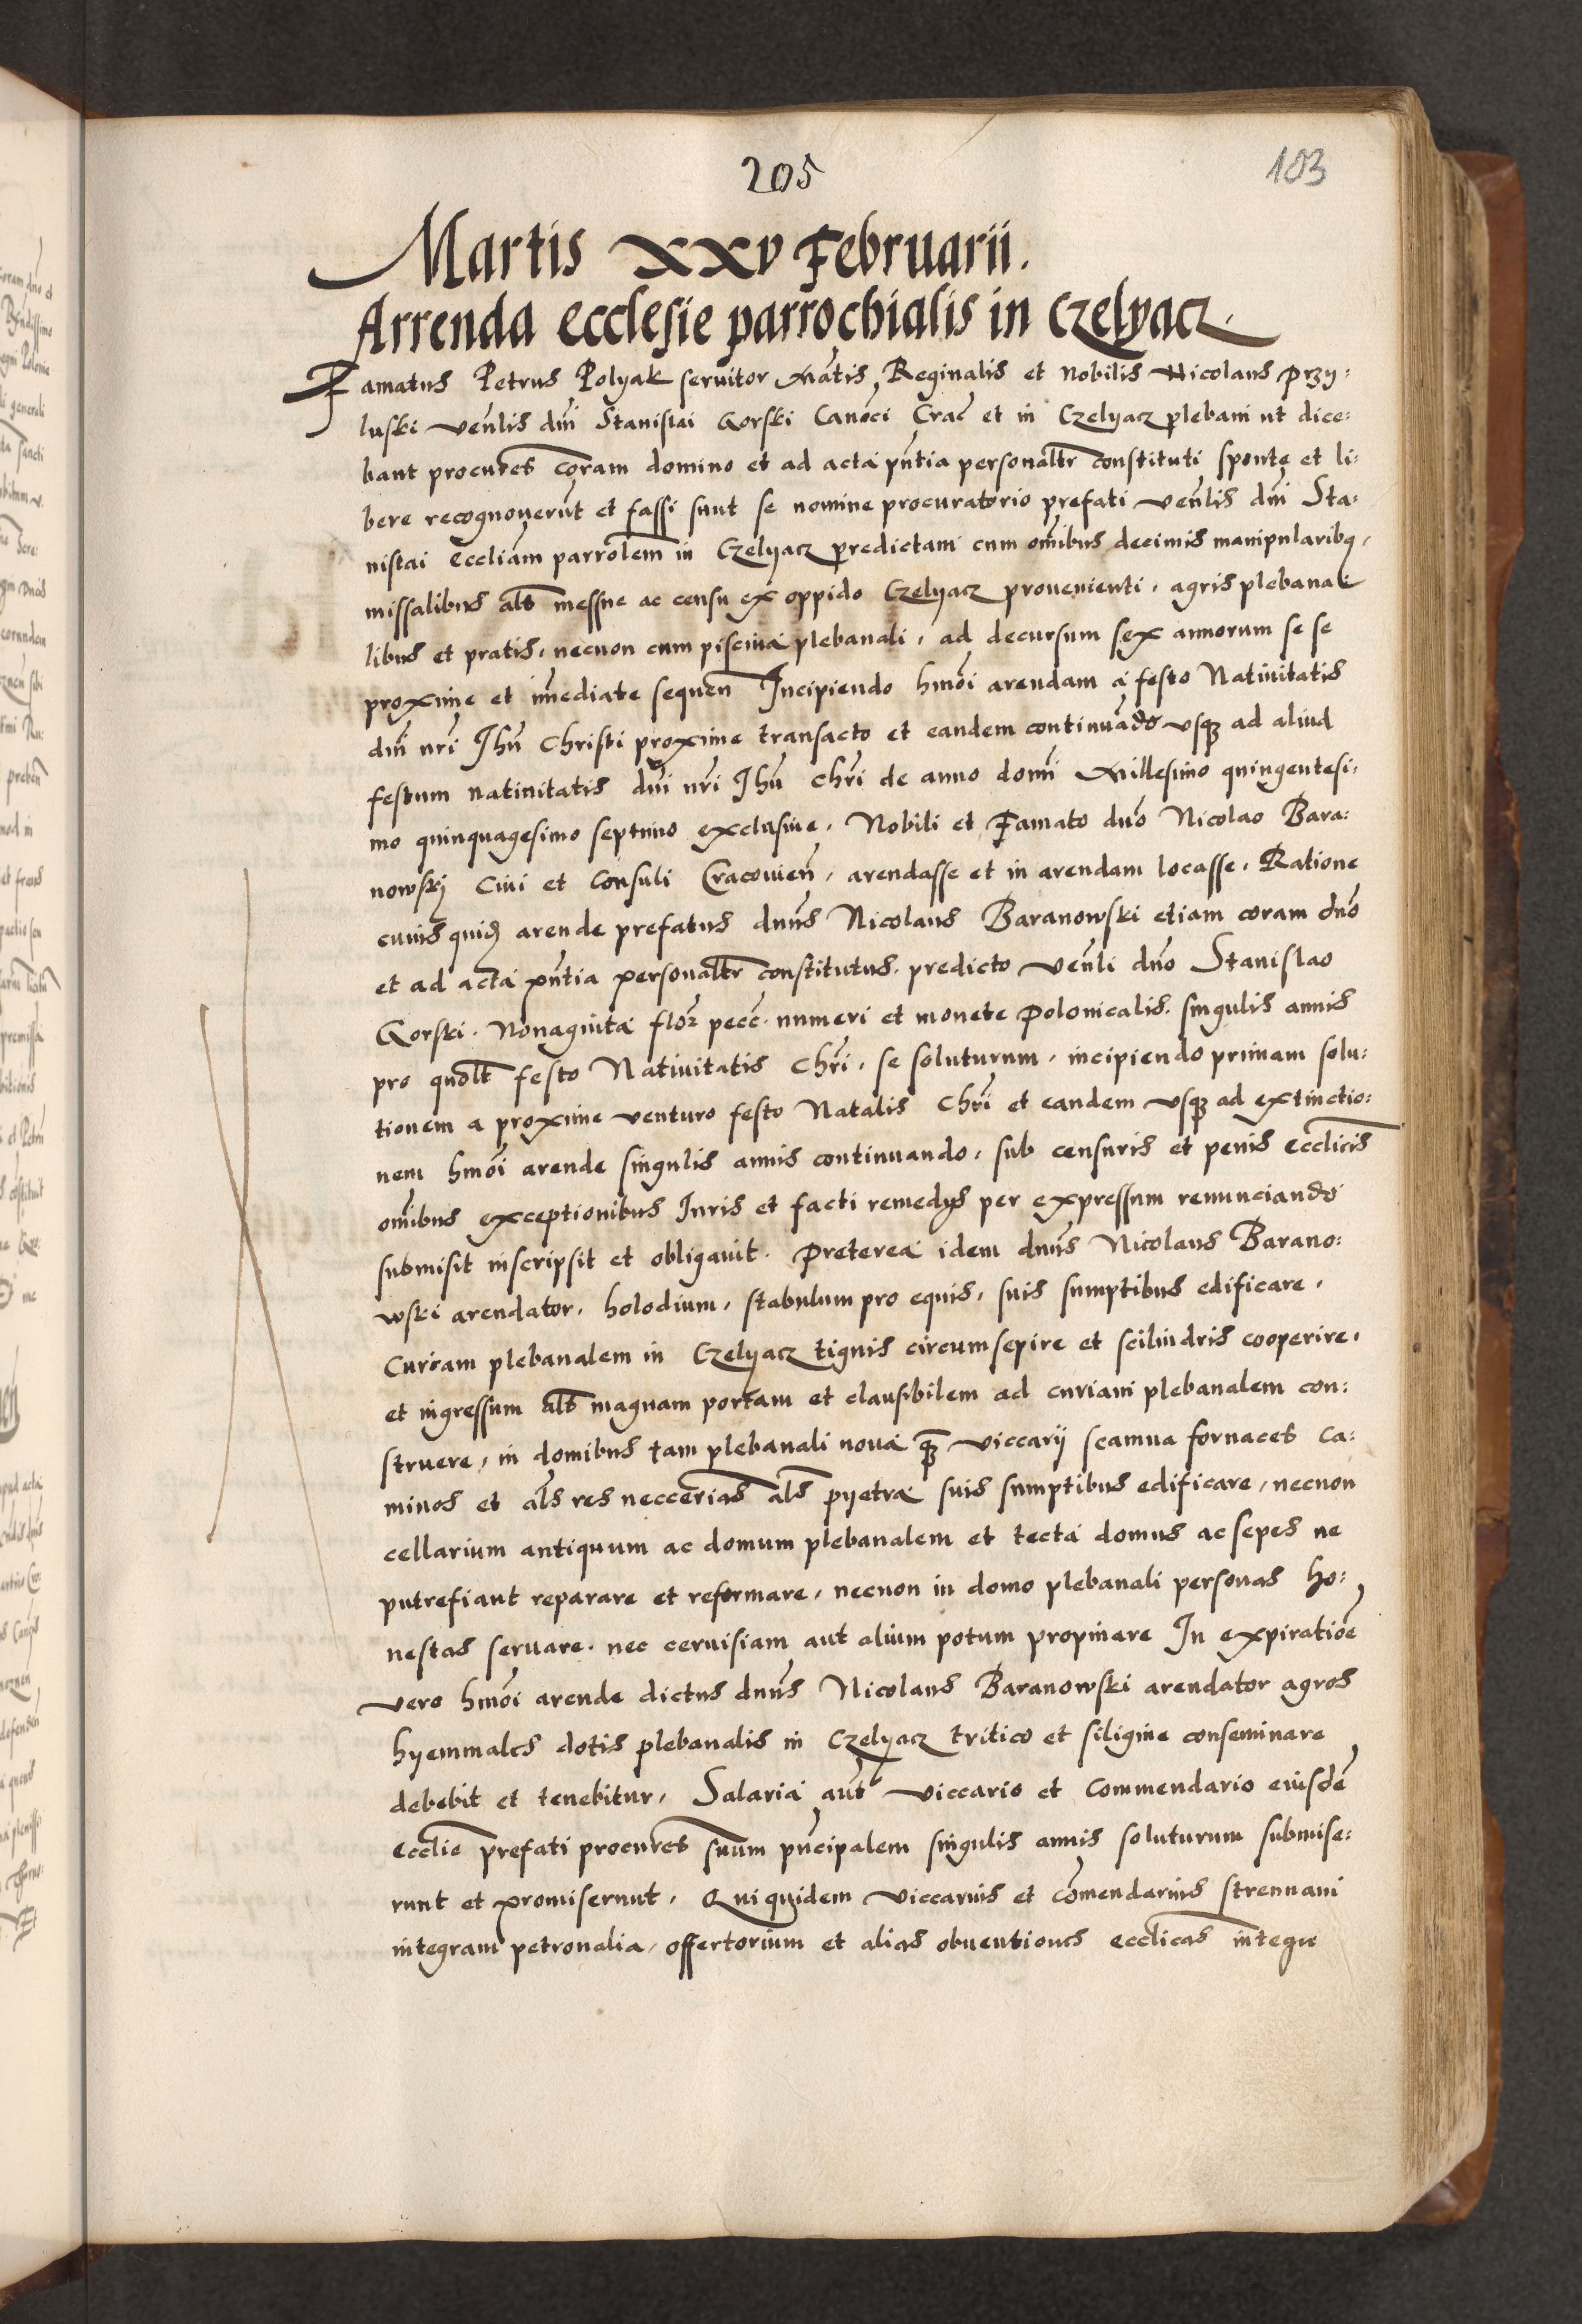 205
103
Martis xxv Februarii.
Arrenda ecclesie parrochialis in Czelyacz.
Famatus Petrus Polyak seruitor Mãtis Reginalis et nobilis Nicolaus Przy:
luski veñlis dñi Stanislai Gorski Canoci Crac̃ et in Czelyacz plebani ut dice:
bant procur̃es coram domino et ad acta pñtia personaltr̃ constituti sponte et li:
bere recognouerũt et fassi sunt se nomine procuratorio prefati veñlis dñi Sta:
nislai eccliam parrolem in Czelyacz predictam cum om̃ibus decimis manipularibq,
missalibus als̃ messne ac censu ex oppido Czelyacz prouenienti, agris plebana:
libus et pratis, necnon cum piscina plebanali, ad decursum sex annorum se se
proxime et im̃ediate sequeñ Incipiendo hmõi arendam a festo Natiuitatis
dñi nr̃i Jhũ Christi proxime transacto et eandem continuãdo vsq3 ad aliud
festum natiuitatis dñi nr̃i Jhũ chr̃i de anno domi Millesimo quingentesi:
mo quinquagesimo septimo exclusiue, Nobili et Famato dño Nicolao Bara:
nowskÿ Ciui et Consuli Cracouieñ, arendasse et in arendam locasse. Ratione
cuius quid arende prefatus dñus Nicolaus Baranowski etiam coram dño
et ad acta pñtia personaltr̃ constitutus, predicto veñli dño Stanislao
Gorski. Nonaginta flor̃ pecc̃. numeri et monete Polonicalis. singulis annis
pro quolt̃ festo Natiuitatis Chr̃i, se soluturum, incipiendo primam solu:
tionem a proxime venturo festo Natalis Chr̃i et eandem vsq3 ad extinctio:
nem hmõi arende singulis annis continuando, sub censuris et penis ecclicis
om̃ibus exceptionibus Juris et facti remedÿs per expressum renunciando
submisit inscripsit et obligauit. Preterea idem dñus Nicolaus Barano:
wski arendator, holodium, stabulum pro equis, suis sumptibus edificare,
Curiam plebanalem in Czelyacz tignis circumsepire et scilindris cooperire,
et ingressum als̃ magnam portam et clausibilem ad curiam plebanalem con:
struere, in domibus tam plebanali noua q̃3 viccarÿ scamna fornaces ca:
minos et als res neccerias als̃ pyetra suis sumptibus edificare, necnon
cellarium antiquum ac domum plebanalem et tecta domus ac sepes ne
putrefiant reparare et reformare, necnon in domo plebanali personas ho:
nestas seruare. nec ceruisiam aut alium potum propinare In expiratioẽ
vero hmõi arende dictus dñus Nicolaus Baranowski arendator agros
hyemmales dotis plebanalis in Czelyacz tritico et siligine conseminare
debebit et tenebitur. Salaria aũt viccario et Commendario eiusdẽ
ecclie prefati procur̃es suum pñcipalem singulis annis soluturum submise:
runt et promiserunt. Qui quidem viccarius et cõmendarius strennam
integram petronalia, offertorium et alias obuentiones ecclicas integre